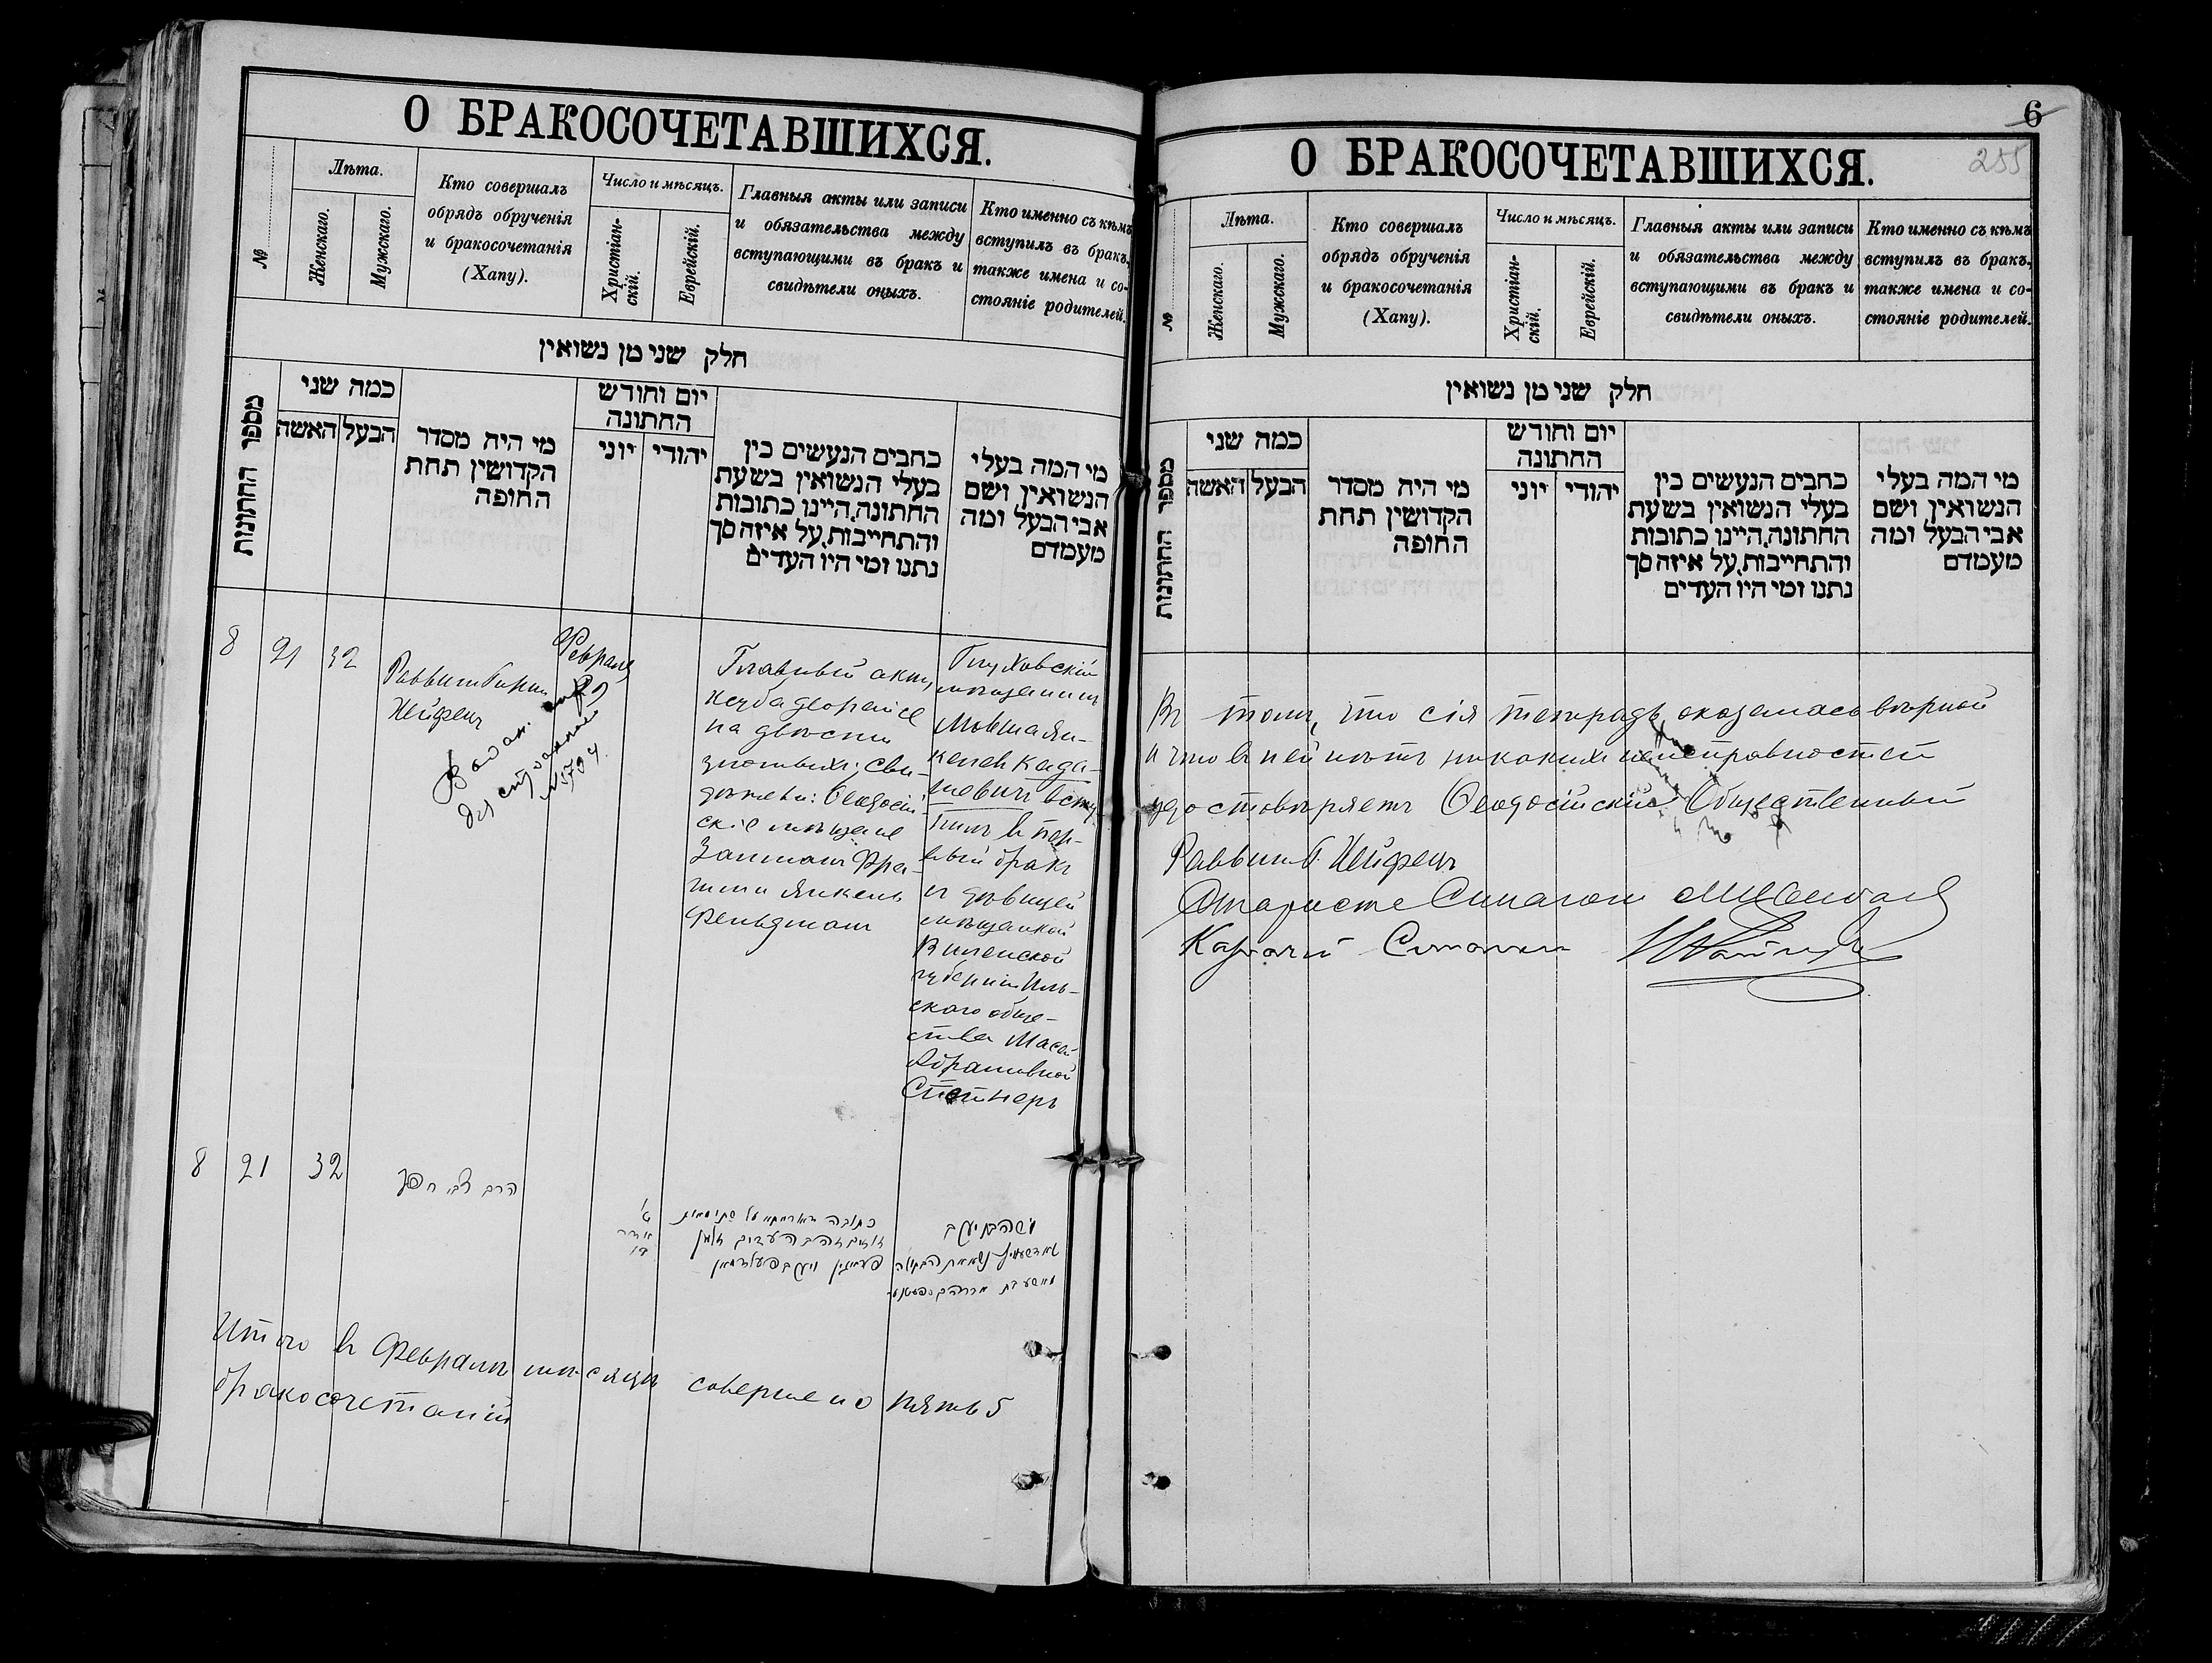 О БРАКОСОЧЕТАВШИХСЯ.
№
Лѣта.
Женскаго.
Мужскаго.
Кто совершалъ
обрядъ обрученія
и бракосочетанія
(Хапу).
Число и мѣсяцъ.
Христіан-
скій.
Еврейскій.
Главныя акты или записи
и обязательства между
вступающими въ бракъ и
свидѣтели оныхъ.
Кто именно съ кѣмъ
вступилъ въ бракъ,
также имена и со-
стояніе родителей.
חלק שני מן נשואין
מספר החתונות
כמה שני
הבעל
האשה
מי היה מסדר
הקדושין תחת
החופה
יום וחודש
החתונה
יהודי
יוני
כתבים הנעשים בין
בעלי הנשואין בשעת
החתונה, היינו כתובות
והתחייבות, על איזה סך
נתנו ומי היו העדים
מי המה בעלי
הנשואין ושם
אבי הבעל ומה
מעמדם
8
21
32
Раввинъ
Хейфецъ
Февраля
Выдан
№ 1704
Главный актъ,
на двѣсти
злотыхъ; сви-
дѣтели: Ѳеодосій-
скіе мѣщане
Залманъ Фра-
и Янкель
Фельдманъ
Глуховскій
мѣщанинъ
Мовша Ян-
келевъ Када-
шевичъ всту-
пилъ въ пер-
вый бракъ
съ дѣвицей
мѣщанкой
Виленской
губерніи Иль-
скаго обще-
ства Масей
Абрамовной
8
21
32
הרב צבי חפץ
ט'
אדר
משה בן יעקב
Итого въ Февралѣ мѣсяцѣ совершено пять 5
бракосочетаній
6
255
О БРАКОСОЧЕТАВШИХСЯ.
№
Лѣта.
Женскаго.
Мужскаго.
Кто совершалъ
обрядъ обрученія
и бракосочетанія
(Хапу).
Число и мѣсяцъ.
Христіан-
скій.
Еврейскій.
Главныя акты или записи
и обязательства между
вступающими въ бракъ и
свидѣтели оныхъ.
Кто именно съ кѣмъ
вступилъ въ бракъ,
также имена и со-
стояніе родителей.
חלק שני מן נשואין
מספר החתונות
כמה שני
הבעל
האשה
מי היה מסדר
הקדושין תחת
החופה
יום וחודש
החתונה
יהודי
יוני
כתבים הנעשים בין
בעלי הנשואין בשעת
החתונה, היינו כתובות
והתחייבות, על איזה סך
נתנו ומי היו העדים
מי המה בעלי
הנשואין ושם
אבי הבעל ומה
מעמדם
Въ томъ, что сія тетрадь оказалась вѣрной
и что въ ней нѣтъ никакихъ неисправностей
удостовѣряетъ Ѳеодосійскій Общественный
Раввинъ Хейфецъ
Староста Синагоги
Казначей Синагоги